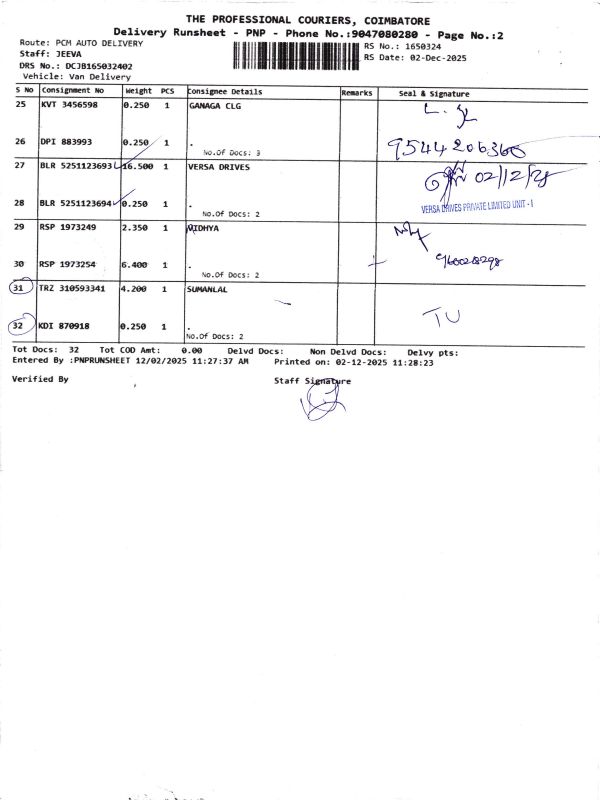 THE PROFESSIONAL COURIERS, COIMBATORE
Delivery Runsheet - PNP - Phone No.:9047080280 - Page No.:2
Route: PCM AUTO DELIVERY
RS No.: 1650324
Staff: JEEVA
RS Date: 02-Dec-2025
DRS No.: DCJB165032402
Vehicle: Van Delivery
S No Consignment No Weight PCS Consignee Details Remarks Seal & Signature
25 KVT 3456598 0.250 1 GANAGA CLG
26 DPI 883993 0.250 1 .
No.Of Docs: 3
9544206360
27 BLR 5251123693 16.500 1 VERSA DRIVES
02/12/25
28 BLR 5251123694 0.250 1 .
VERSA DRIVES PRIVATE LIMITED UNIT - I
No.Of Docs: 2
29 RSP 1973249 2.350 1 VIDHYA
30 RSP 1973254 6.400 1 .
960028298
No.Of Docs: 2
31 TRZ 310593341 4.200 1 SUMANLAL
TU
32 KDI 870918 0.250 1 .
No.Of Docs: 2
Tot Docs: 32 Tot COD Amt: 0.00 Delvd Docs: Non Delvd Docs: Delvy pts:
Entered By :PNPRUNSHEET 12/02/2025 11:27:37 AM Printed on: 02-12-2025 11:28:23
Verified By Staff Signature